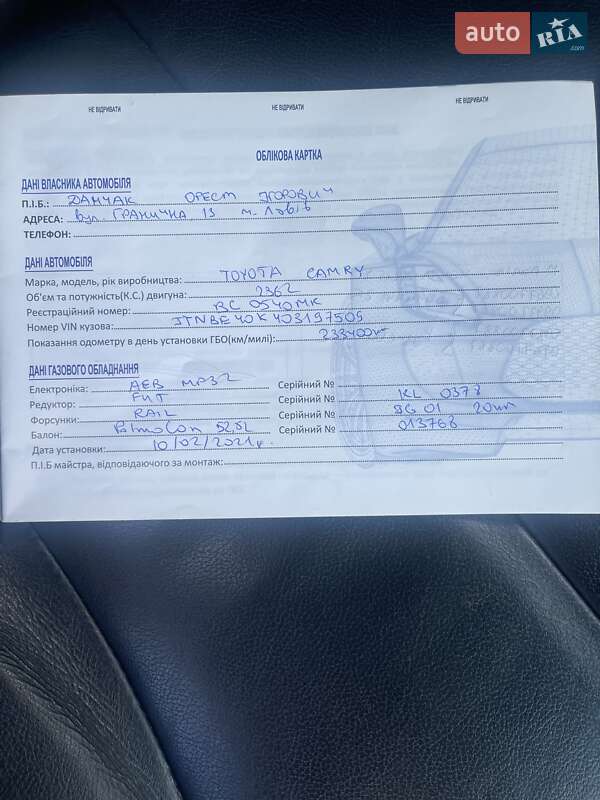 auto RIA.com
НЕ ВІДРИВАТИ НЕ ВІДРИВАТИ НЕ ВІДРИВАТИ
ОБЛІКОВА КАРТКА
ДАНІ ВЛАСНИКА АВТОМОБІЛЯ
П.І.Б.: ДАМЧАК ОРЕСТ ІГОРОВИЧ
АДРЕСА: вул. ГРАНИЧНА 13 м. Львів
ТЕЛЕФОН:
ДАНІ АВТОМОБІЛЯ
Марка, модель, рік виробництва: TOYOTA CAMRY
Об'єм та потужність(К.С.) двигуна: 2362
Реєстраційний номер: BC 0540MK
Номер VIN кузова: JTNBE40K403197505
Показання одометру в день установки ГБО(км/милі): 233400
ДАНІ ГАЗОВОГО ОБЛАДНАННЯ
Електроніка: AEB MP32 Серійний №
Редуктор: Серійний № KL 0378
Форсунки: RAIL Серійний № 01
Балон: 52,5L Серійний № 013768
Дата установки: 10/02/2021р.
П.І.Б майстра, відповідаючого за монтаж: